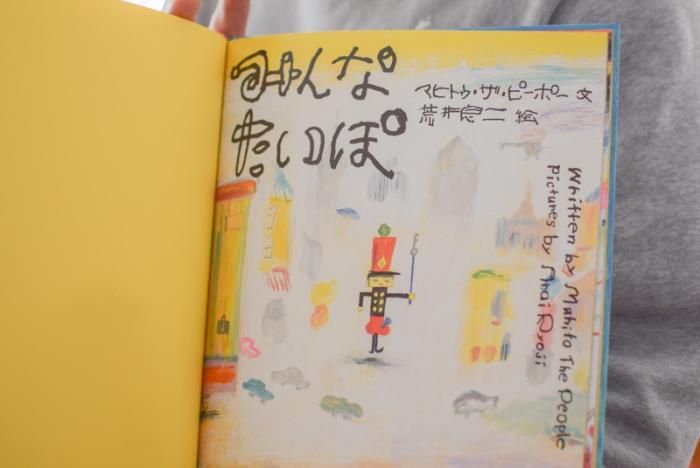 みんな
たいぽ
マヒトゥ・ザ・ピーポー 文
荒井良二 絵
Written by Mahito The People
Pictures by Arai Ryoji